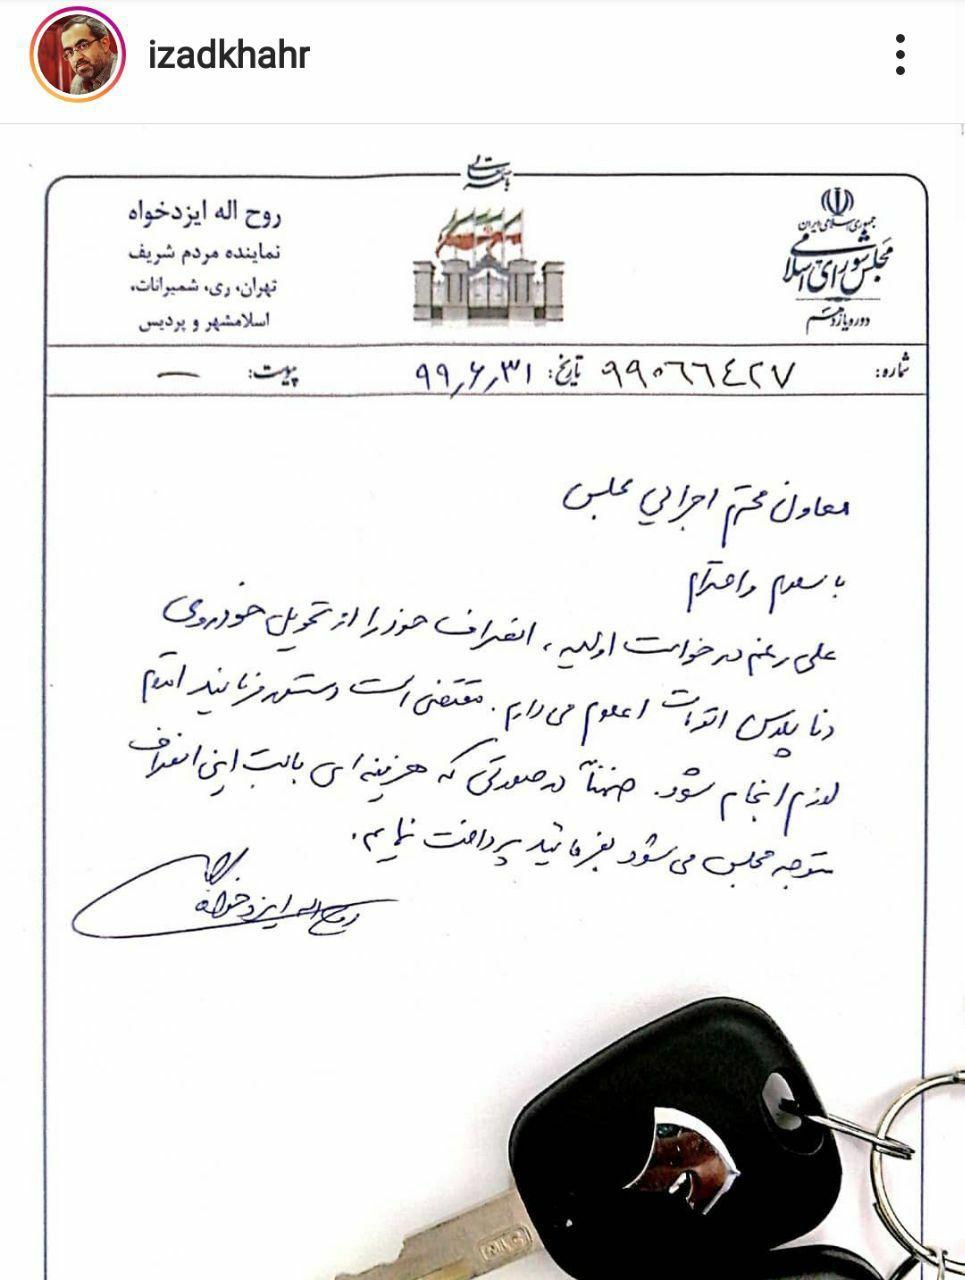 izadkhahr
باسمه تعالی
جمهوری اسلامی ایران
مجلس شورای اسلامی
دوره یازدهم
روح اله ایزدخواه
نماینده مردم شریف
تهران، ری، شمیرانات،
اسلامشهر و پردیس
شماره: ۹۹۰۶۶۴۲۷ تاریخ: ۹۹٫۶٫۳۱ پیوست: —
معاون محترم اجرائی مجلس
با سلام و احترام
علی رغم درخواست اولیه، انصراف خود را از تحویل خودروی
دنا پلاس اتومات اعلام می دارم. مقتضی است دستور فرمایید اقدام
لازم انجام شود. ضمناً در صورتی که هزینه ای بابت این انصراف
متوجه مجلس می شود بفرمائید پرداخت نمایم.
روح اله ایزدخواه
MLC